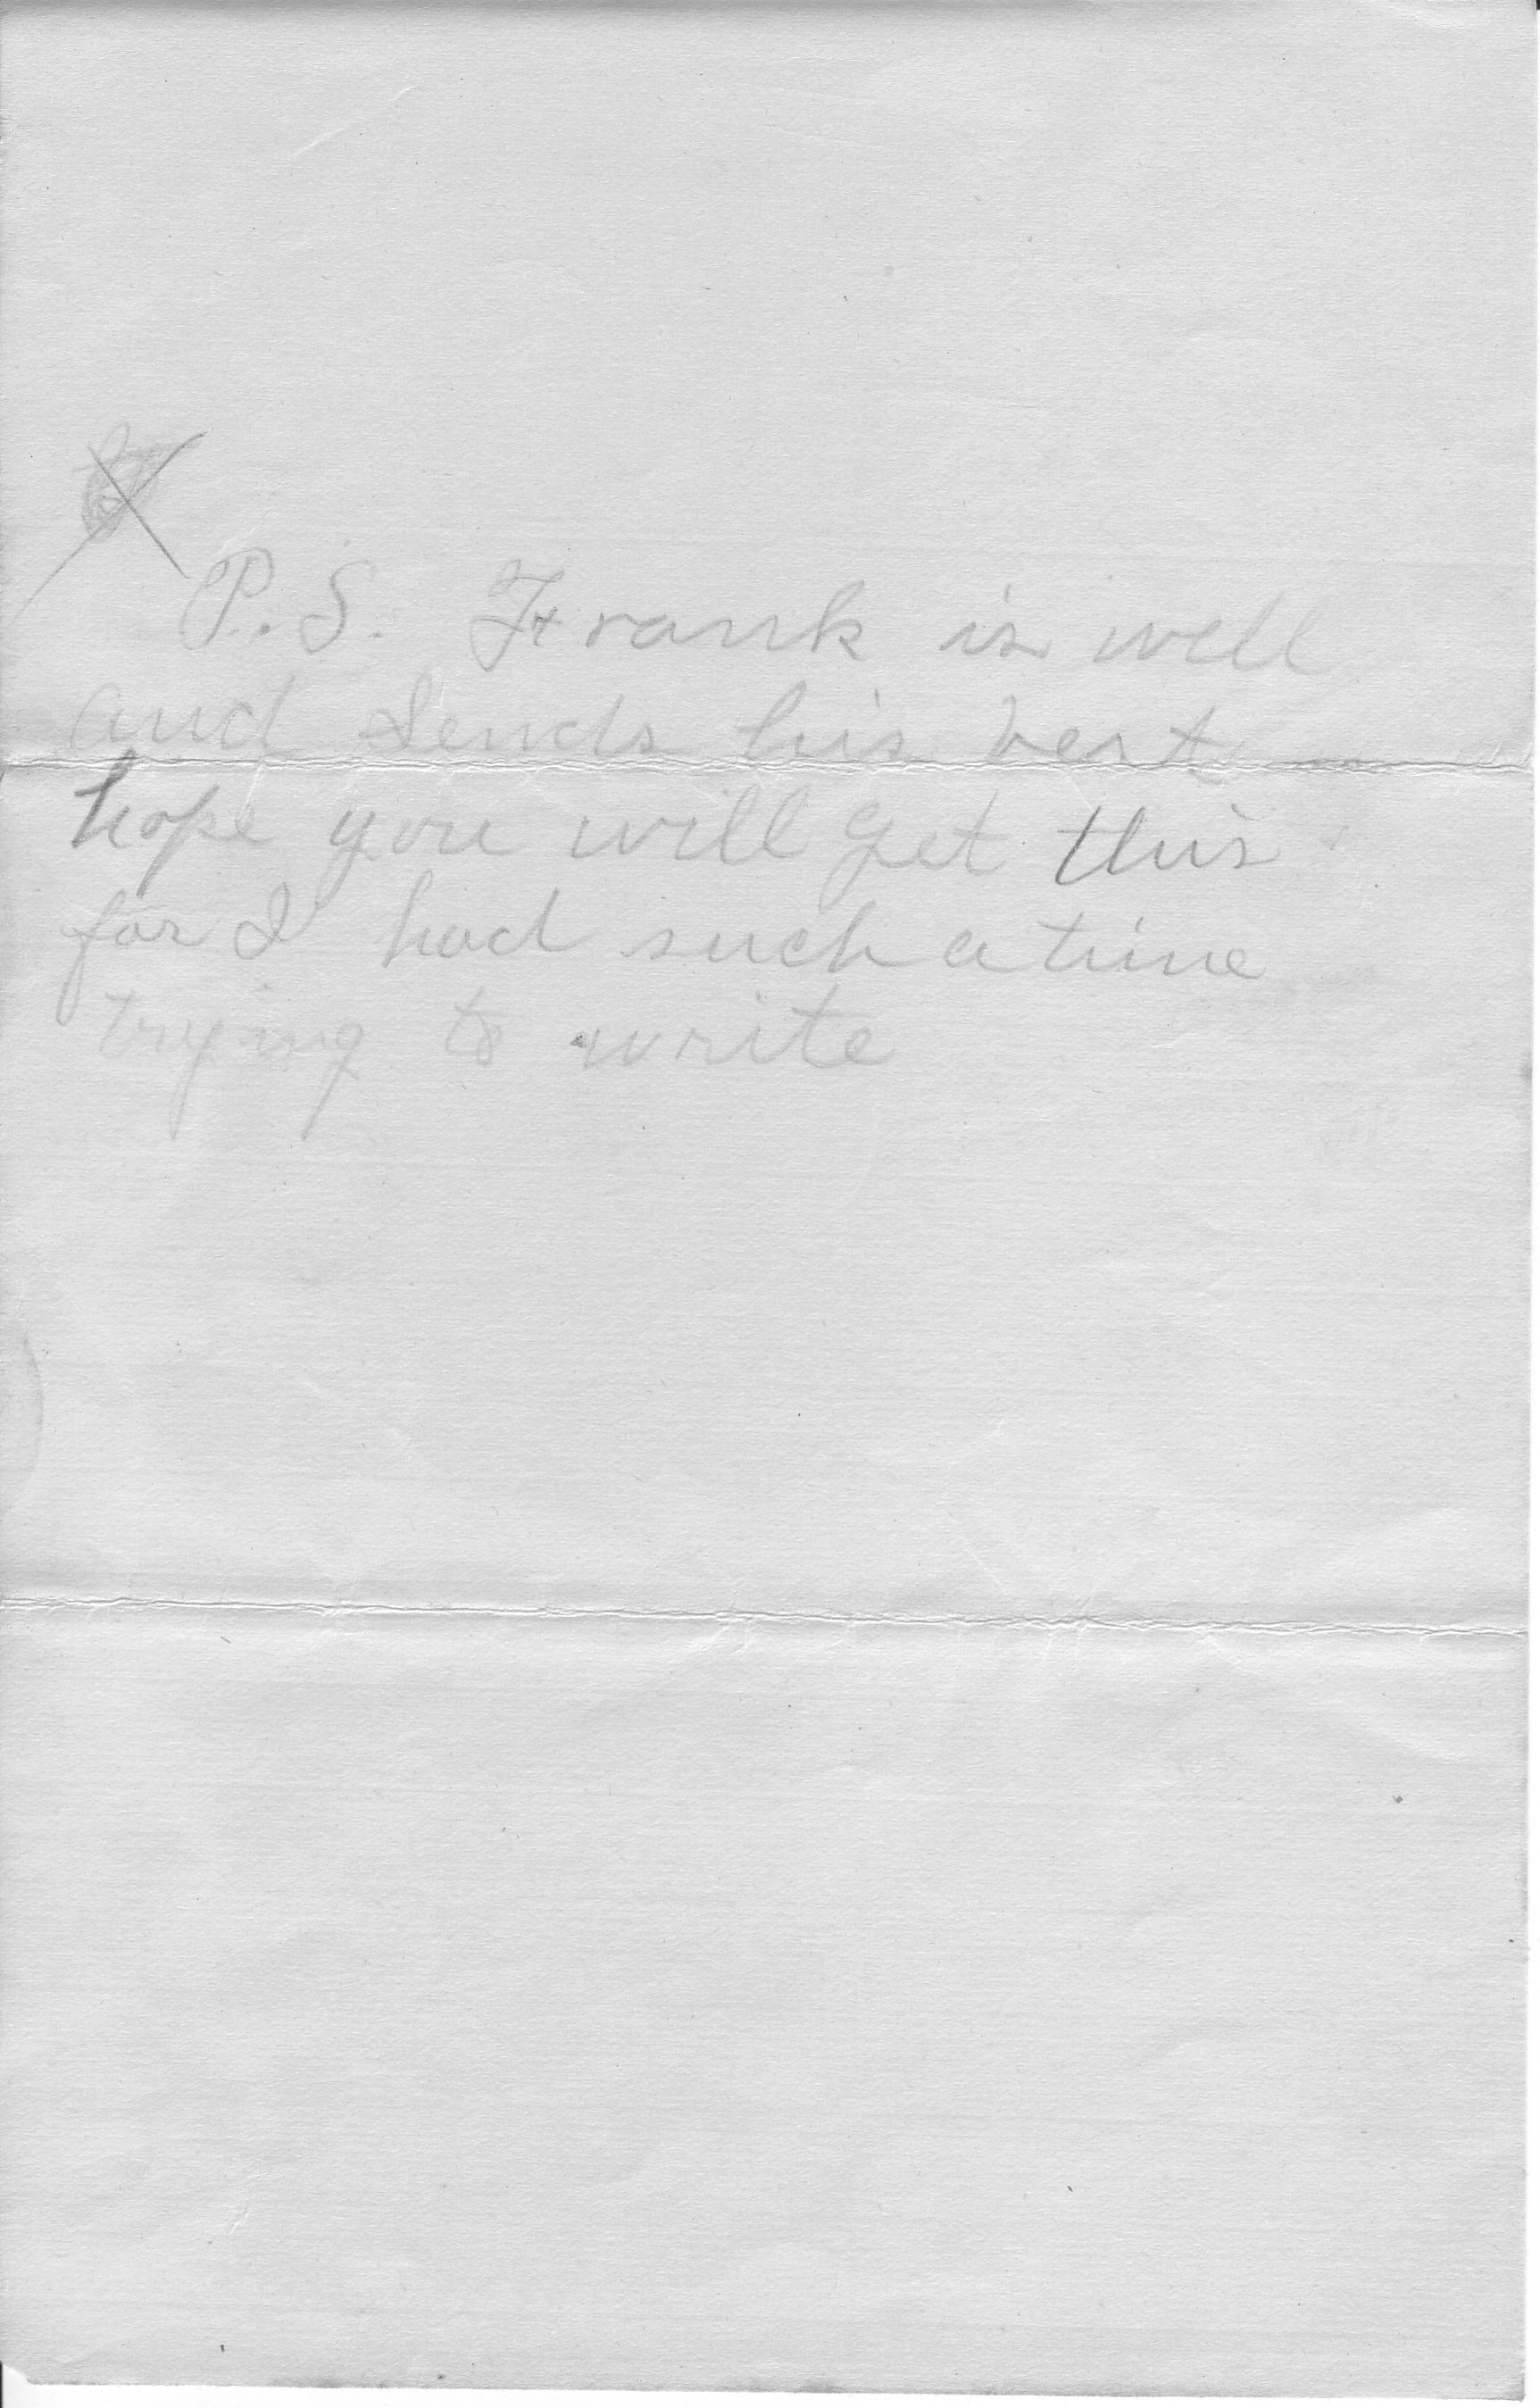 P.S. Frank is well
and sends his best
hope you will get this
for I had such a time
trying to write